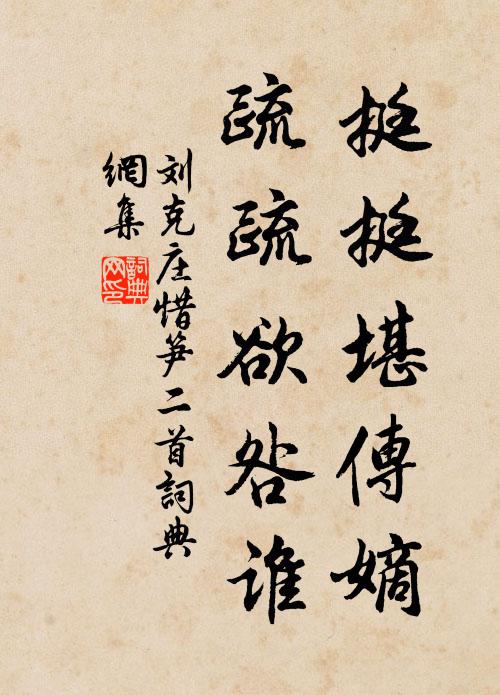 挺挺堪傳嫡
疏疏欲咎谁
刘克庄惜笋二首詞典
網集
詞典
网印